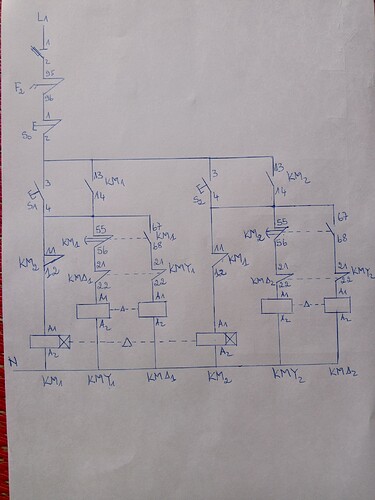 L1
1
2
95
F2
96
1
S0 E
2
3 13 3 13
KM1 KM2
E 14 E 14
S1 4 S2 4
55 67 55 67
KM1 KM1 KM2
11 56 68 11 KM1 56 68
KM2 12 12
21 21 21 21
KMΔ1 KMY1 KMΔ2 KMY2
22 22 22 22
A1 A1 A1 A1
Δ Δ
A2 A2 A2 A2
A1 A1
Δ
A2 A2
N
KM1 KMY1 KMΔ1 KM2 KMY2 KMΔ2